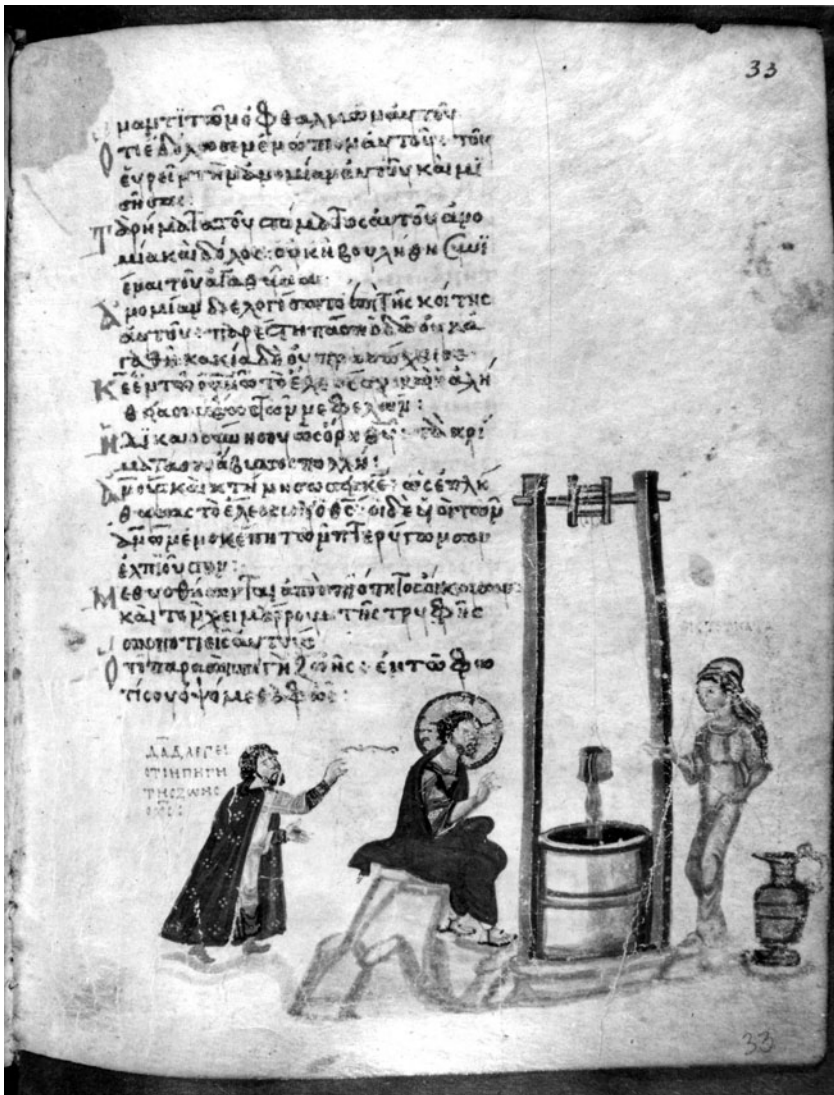 33
ναντι τῶν ὀφθαλμῶν αὐτοῦ
Ὅτι ἐδόλωσεν ἐνώπιον αὐτοῦ: τοῦ
εὑρεῖν τὴν ἀνομίαν αὐτοῦ καὶ μι
σῆσαι:
Τὰ ρήματα τοῦ στόματος αὐτοῦ ἀνο
μία καὶ δόλος: οὐκ ἠβουλήθη συνϊ
έναι τοῦ ἀγαθῦναι
Ἀνομίαν διελογίσατο ἐπὶ τῆς κοίτης
αὐτοῦ: παρέστη πάσῃ ὁδῶ οὐκ ἀ
γαθῆ κακία δὲ οὐ προσώχθισε
Κε ἐν τῶ ουνω τὸ ἔλεός σου καὶ ἡ ἀλή
θειά σου ἕως τῶν νεφελῶν:
Ἡ δικαιοσύνη σου ὡς ὄρη θυ: τὰ κρί
ματά σου ἄβυσσος πολλή:
Ἀνους καὶ κτήνη σώσεις κε: ὡς ἐπλή
θυνας τὸ ἔλεός σου ὁ θς: οἱ δὲ υἱοὶ τῶν
ἀνων ἐν σκέπη τῶν πτερύγων σου
ἐλπιοῦσιν:
Μεθυσθήσονται ἀπὸ πιότητος οἴκου σου:
καὶ τὸν χειμάρρουν τῆς τρυφῆς
σου ποτιεῖς αὐτούς
Ὅτι παρὰ σοὶ πηγὴ ζωῆς: ἐν τῶ φω
τί σου ὀψόμεθα φῶς:
ΔΑΔ ΛΕΓΕΙ
ΟΤΙ Η ΠΗΓΗ
ΤΗΣ ΖΩΗΣ
33